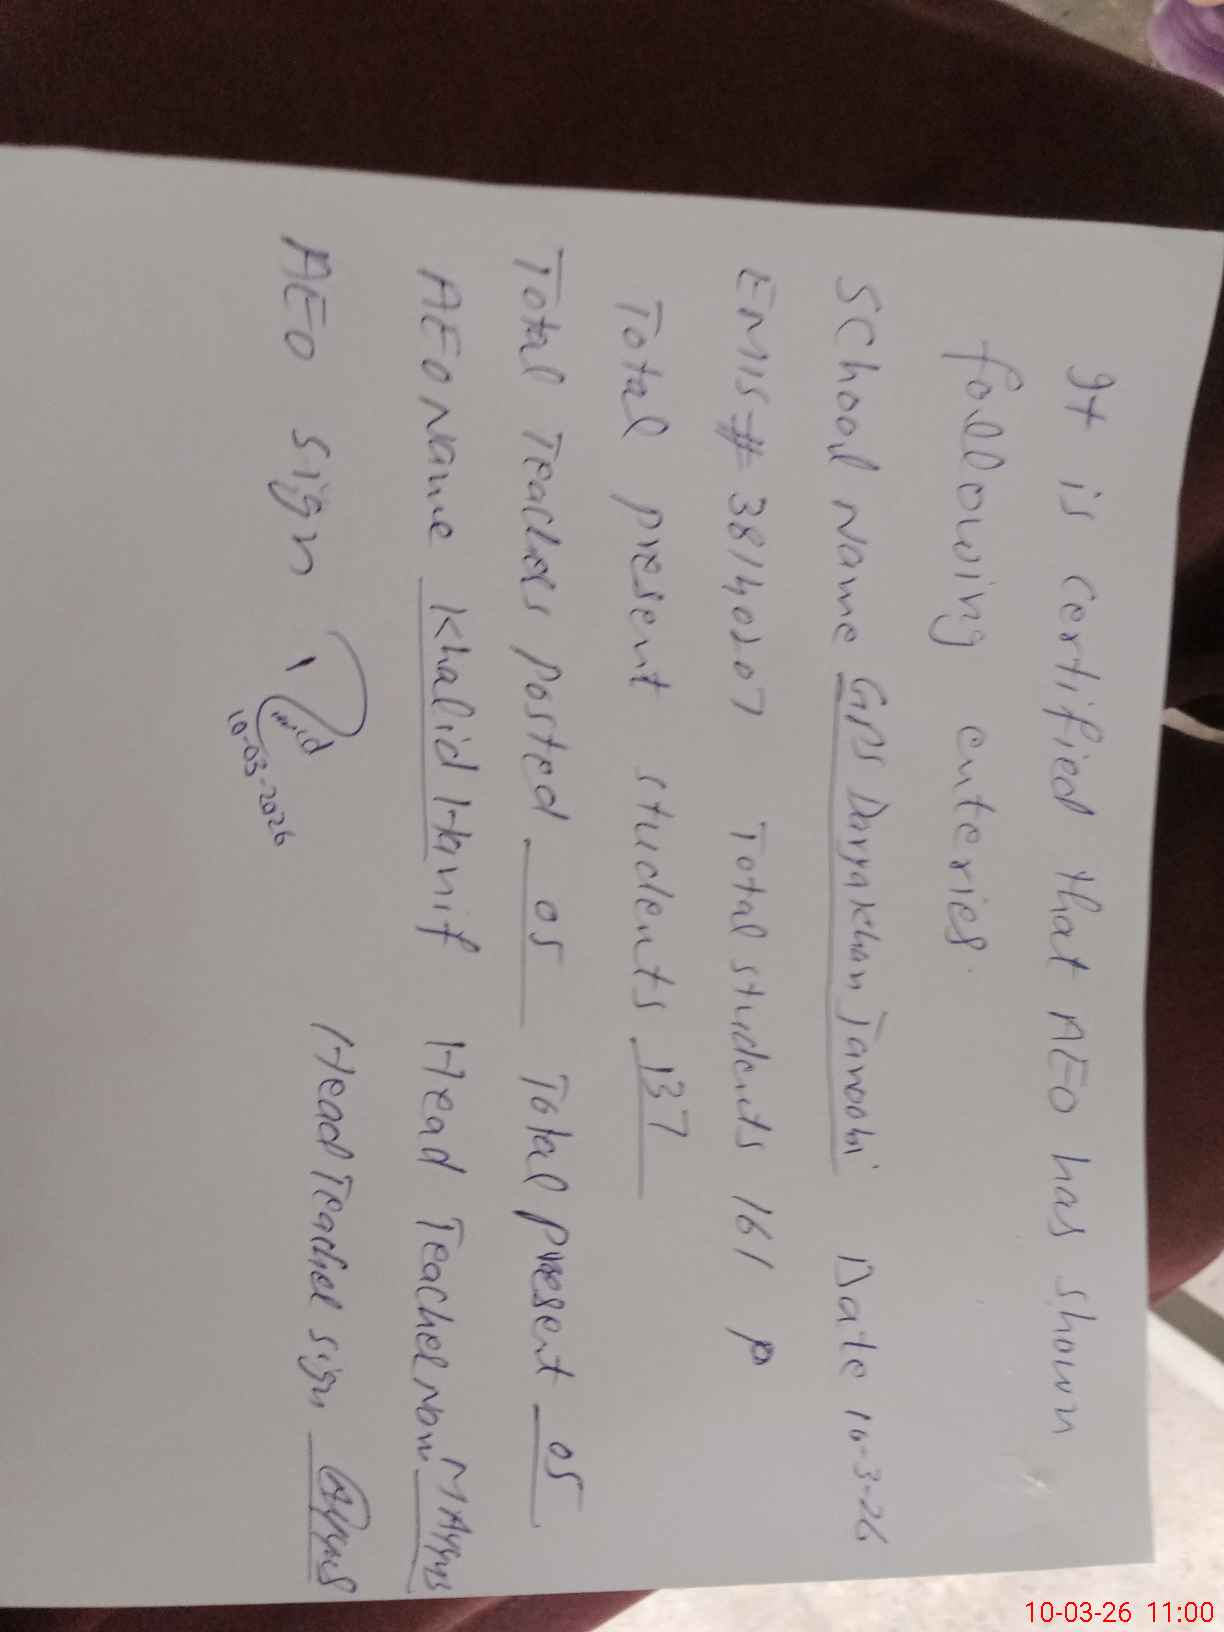 It is certified that AEO has shown
following enteries.
School Name GPS Daryakhan Janoobi Date 10-3-26
EMIS # 38140207 Total students 161 P
Total present students 137
Total Teaches posted 05 Total present 05
AEO Name Khalid Hanif Head Teacher Nam M Ayyus
AEO sign Head Teacher sign
10-03-2026
10-03-26 11:00